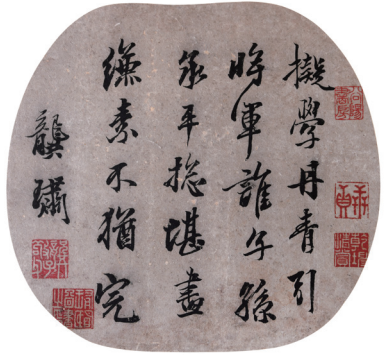 擬學丹青引
將軍誰子孫
承平捴堪畫
縑素不猶完
龔璛